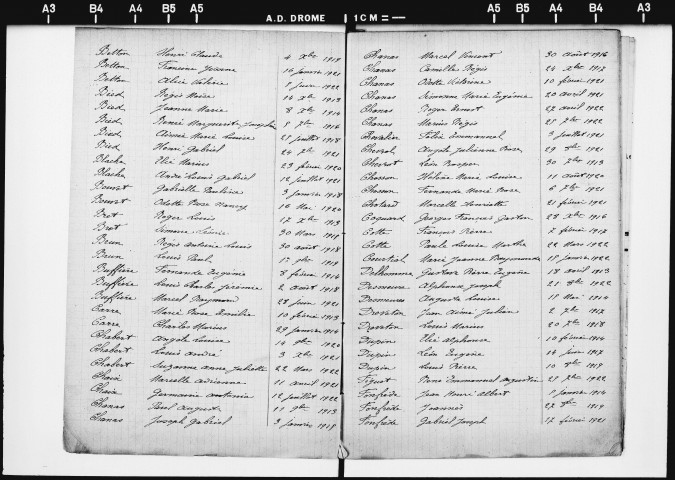 A3 B4 A4 B5 A5 A.D. DROME 1CM = A5 B5 A4 B4 A3
Betton Henri Claude 4 Xbre 1919
Betton Francine Jeanne 16 janvier 1921
Betton Alice Valérie 1922
Bied Régis Marius 14 Xbre 1913
Bied Jeanne Marie 8 Xbre 1914
Bied René Marguerite Joseph 1916
Bied Aimée Marie Louise 25 juillet 1918
Bied Henri Gabriel 24 1921
Blache Elie Marius 23 février 1920
Blache André Louis Gabriel 12 juillet 1921
Bouvet Gabrielle Pauline 3 janvier 1918
Bouvet Odette Rose Nancy 16 Mai 1920
Bret Roger Louis 17 Xbre 1913
Bret Simone 30 Mars 1919
Brun Régis Antoine Louis 30 août 1918
Brun Louis Paul 1919
Buffière Fernande Eugénie 8 février 1914
Buffière Louis Charles Jérémie 2 août 1918
Buffière Marcel Raymond 28 juin 1921
Carre Marie Rose Emilie 10 février 1913
Carre Charles Marius 29 janvier 1914
Chabert Angèle Louise 14 1920
Chabert Louis André 3 Xbre 1921
Chabert Suzanne Anne Juliette 22 Mars 1922
Chaix Marcelle Adrienne 11 avril 1921
Chaix Germaine Antonia 12 juillet 1922
Chanas Paul Auguste 11 1913
Chanas Joseph Gabriel 3 janvier 1919
Chanas Marcel Vincent 30 août 1916
Chanas Camille Régis 24 Xbre 1917
Chanas Odette Victorine 10 février 1921
Chanas Simonne Marie Eugénie 20 avril 1921
Chanas Roger Ernest 22 avril 1922
Chanas Marius Régis 25 1922
Chevalier Félix Emmanuel 3 juillet 1921
Cheval Angèle Julienne Rose 29 1921
Chevrot Léon Prosper 30 1913
Chosson Hélène Marie Louise 11 août 1920
Chosson Fernande Marie Rose 6 1921
Chotard Marcelle Henriette 21 février 1921
Coquard Georges François Gaston 28 Xbre 1916
Cotte François Pierre 7 février 1917
Cotte Paule Louise Marthe 22 Mars 1922
Courtial Marie Jeanne Raymonde 18 janvier 1922
Delhomme Gustave Pierre Eugène 18 avril 1913
Alphonse Joseph 21 1922
Auguste Louise 18 Mai 1914
Jean Aimé Julien 2 1917
Louis Marius 20 1918
Dupin Elie Alphonse 10 février 1914
Dupin Léon Eugène 14 juin 1917
Dupin Louis Pierre 10 1919
Emmanuel Augustin 25 1922
Fonfrède Jean Henri Albert 1 janvier 1914
Fonfrède Jeannès 27 1919
Fonfrède Gabriel Joseph 17 février 1921